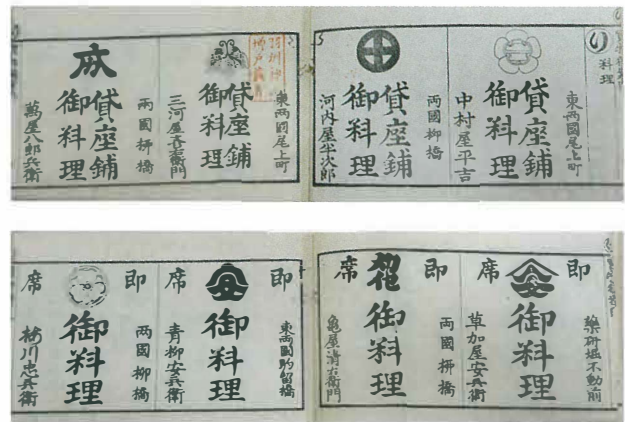 料理
東両國尾上町
貸座鋪
御料理
中村屋平吉
両國柳橋
貸座鋪
御料理
河内屋半次郎
東両國尾上町
貸座鋪
御料理
三河屋吉右衛門
両國柳橋
貸座鋪
御料理
萬屋八郎兵衛
藥研堀不動前
即席
御料理
草加屋安兵衛
両國柳橋
即席
御料理
亀屋清右衛門
東両國駒留橋
即席
御料理
青柳安兵衛
両國柳橋
即席
御料理
梅川忠兵衛